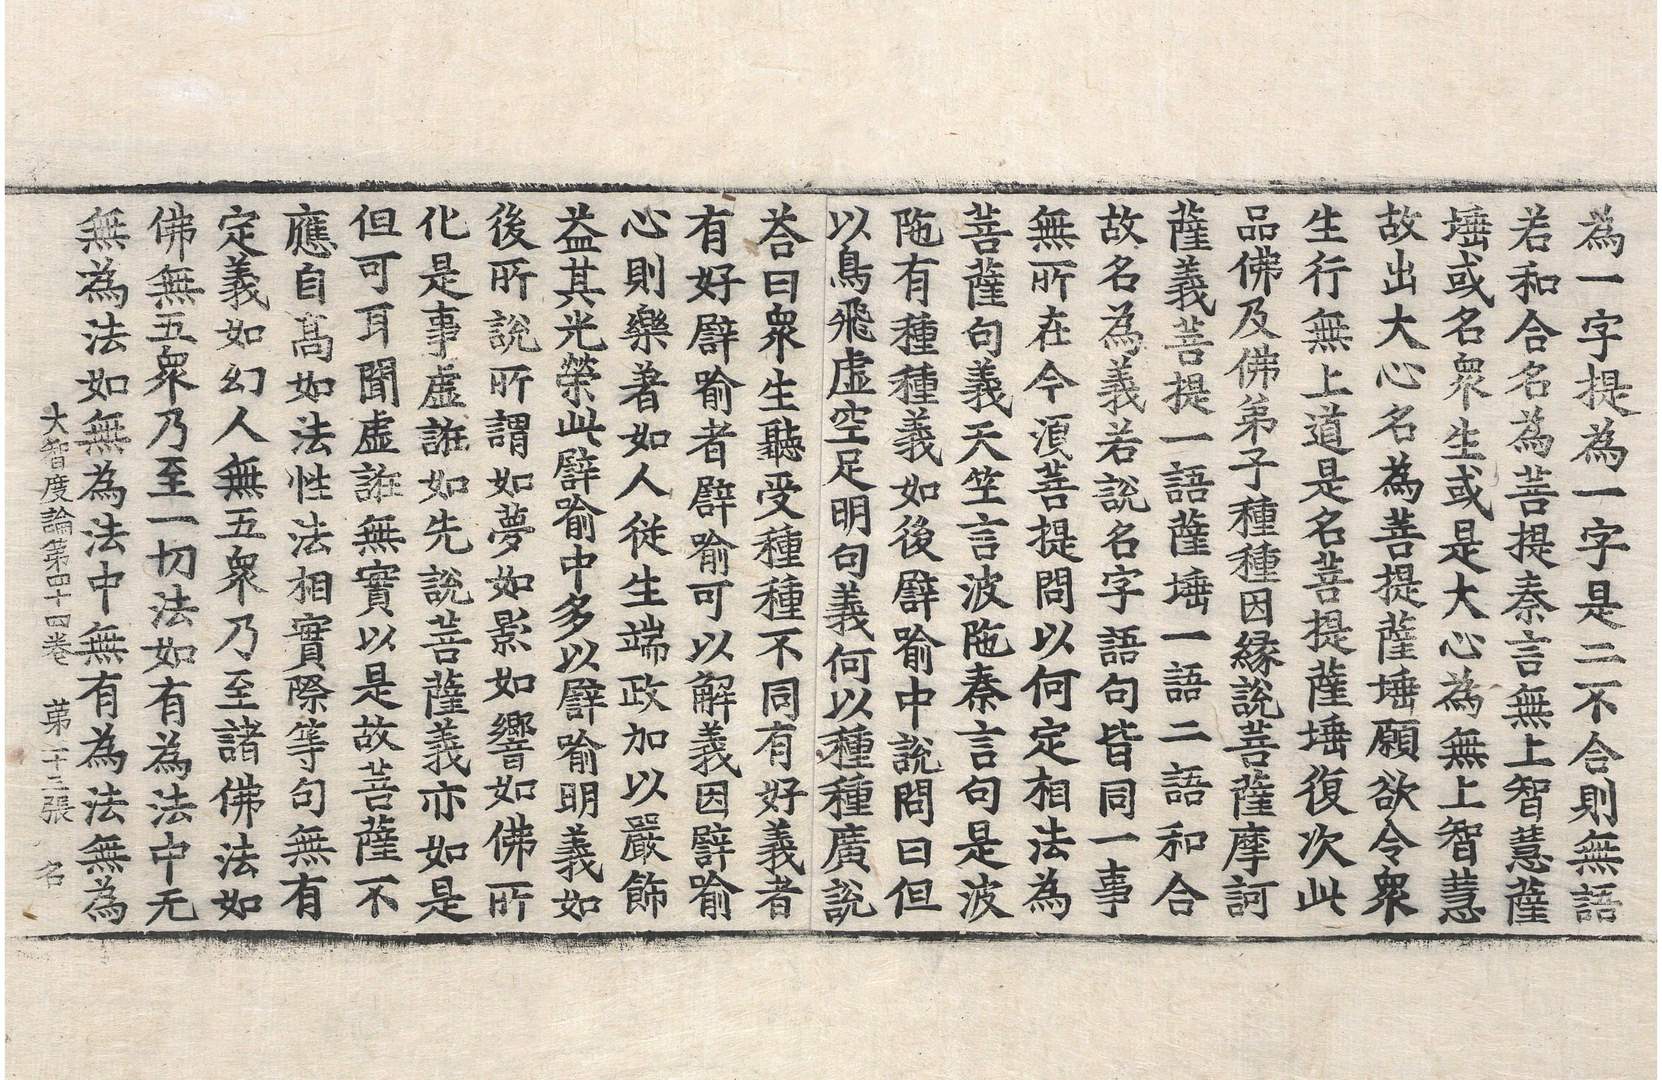 為一字提為一字是二不合則無語
若和合名為菩提秦言無上智慧薩
埵或名衆生或是大心為無上智慧
故出大心名為菩提薩埵願欲令衆
生行無上道是名菩提薩埵復次此
品佛及佛弟子種種因緣說菩薩摩訶
薩義菩提一語薩埵一語二語和合
故名為義若說名字語句皆同一事
無所在今須菩提問以何定相法為
菩薩句義天竺言波陁秦言句是波
陁有種種義如後譬喻中說問曰但
以鳥飛虛空足明句義何以種種廣說
荅曰衆生聽受種種不同有好義者
有好譬喻者譬喻可以解義因譬喻
心則樂著如人從生端政加以嚴飾
益其光榮此譬喻中多以譬喻明義如
後所說所謂如夢如影如響如佛所
化是事虛誑如先說菩薩義亦如是
但可耳聞虛誑無實以是故菩薩不
應自高如法性法相實際等句無有
定義如幻人無五衆乃至諸佛法如
佛無五衆乃至一切法如有為法中无
無為法如無為法中無有為法無為
大智度論第四十四卷 第十三張 名